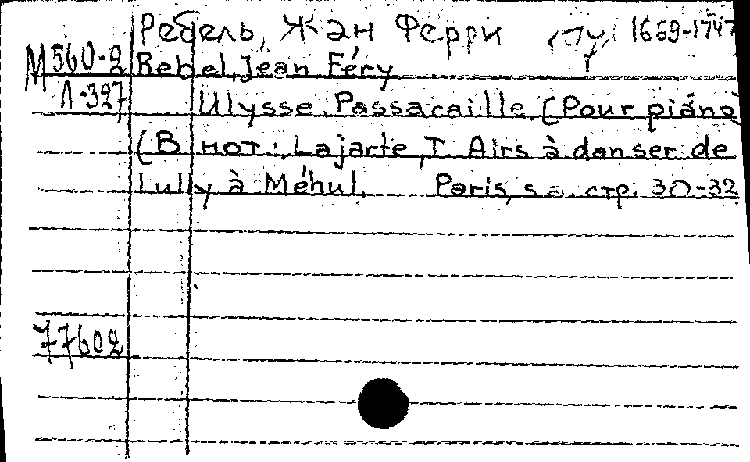 Ребель, Жан Ферри 1669-1747
М560-2 Rebel, Jean Féry
Л-327 Ulysse. Passacaille. [Pour piano]
(В нот.: Lajarte, T. Airs à danser de
Lully à Méhul. Paris, s.a. стр. 30-32
77602